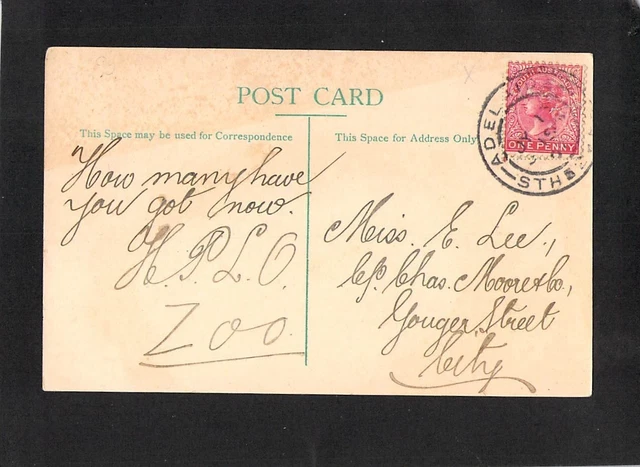 POST CARD
This Space may be used for Correspondence
This Space for Address Only
How many have
you got now.
H.P.L.O.
Zoo.
Miss. E. Lee.,
C/o. Chas. Moore & Co.,
Gouger, Street
City
SOUTH AUSTRALIA
ONE PENNY
ADEL
STH